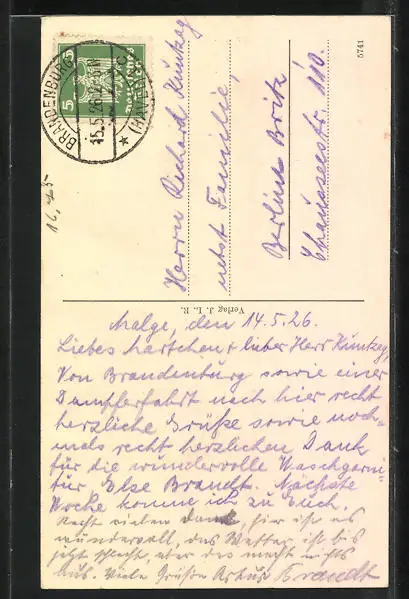 BRANDENBURG
(HAVEL)
15.5.26
Deutsches Reich
5
5
5741
Herrn Richard Kuntzag
nebst Familie,
Berlin Britz
Chausseestr. 110.
Verlag J. L. R.
Malge, den 14.5.26.
Liebes Martchen + lieber Herr Kuntzag,
Von Brandenburg sowie einer
Dampferfahrt nach hier recht
herzliche Grüße sowie noch-
mals recht herzlichen Dank
für die wundervolle Waschgarni-
tur Else Brandt. Nächste
Woche komme ich zu Euch.
Recht vielen Dank, hier ist es
wundervoll, das Wetter ist bis
jetzt schlecht, aber das macht nichts
aus. Viele Grüße Artur Brandt